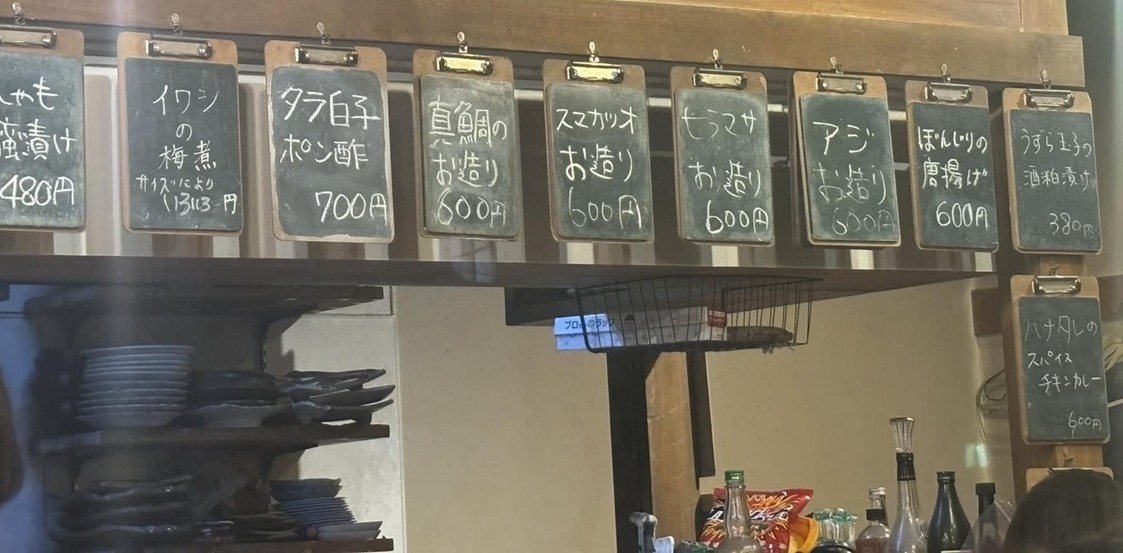 しゃも
漬け
480円
イワシ
の
梅煮
サイズにより
いろいろ円
タラ白子
ポン酢
700円
真鯛の
お造り
600円
スマガツオ
お造り
600円
ヒラマサ
お造り
600円
アジ
お造り
600円
ぼんじりの
唐揚げ
600円
うずら玉子の
酒粕漬け
380円
ハナタレの
スパイス
チキンカレー
600円